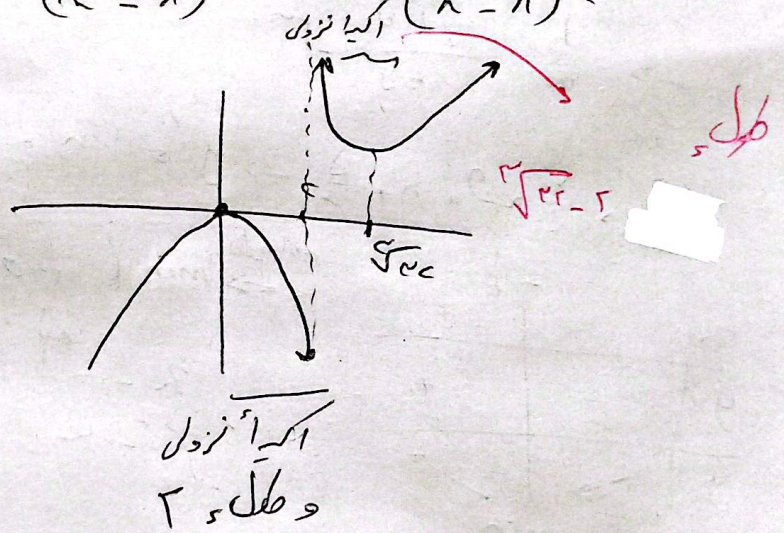 اکیداً نزولی
طول
۲
∛۳۲ - ۲
∛۳۲
اکیداً نزولی
و طول ۲